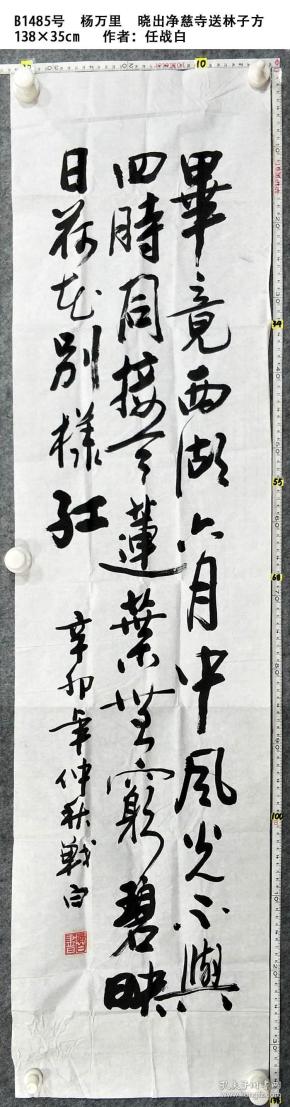 B1485号 杨万里 晓出净慈寺送林子方
138×35cm 作者：任战白
畢竟西湖六月中風光不與
四時同接天蓮葉無窮碧映
日荷花別樣紅
辛卯年仲秋戰白